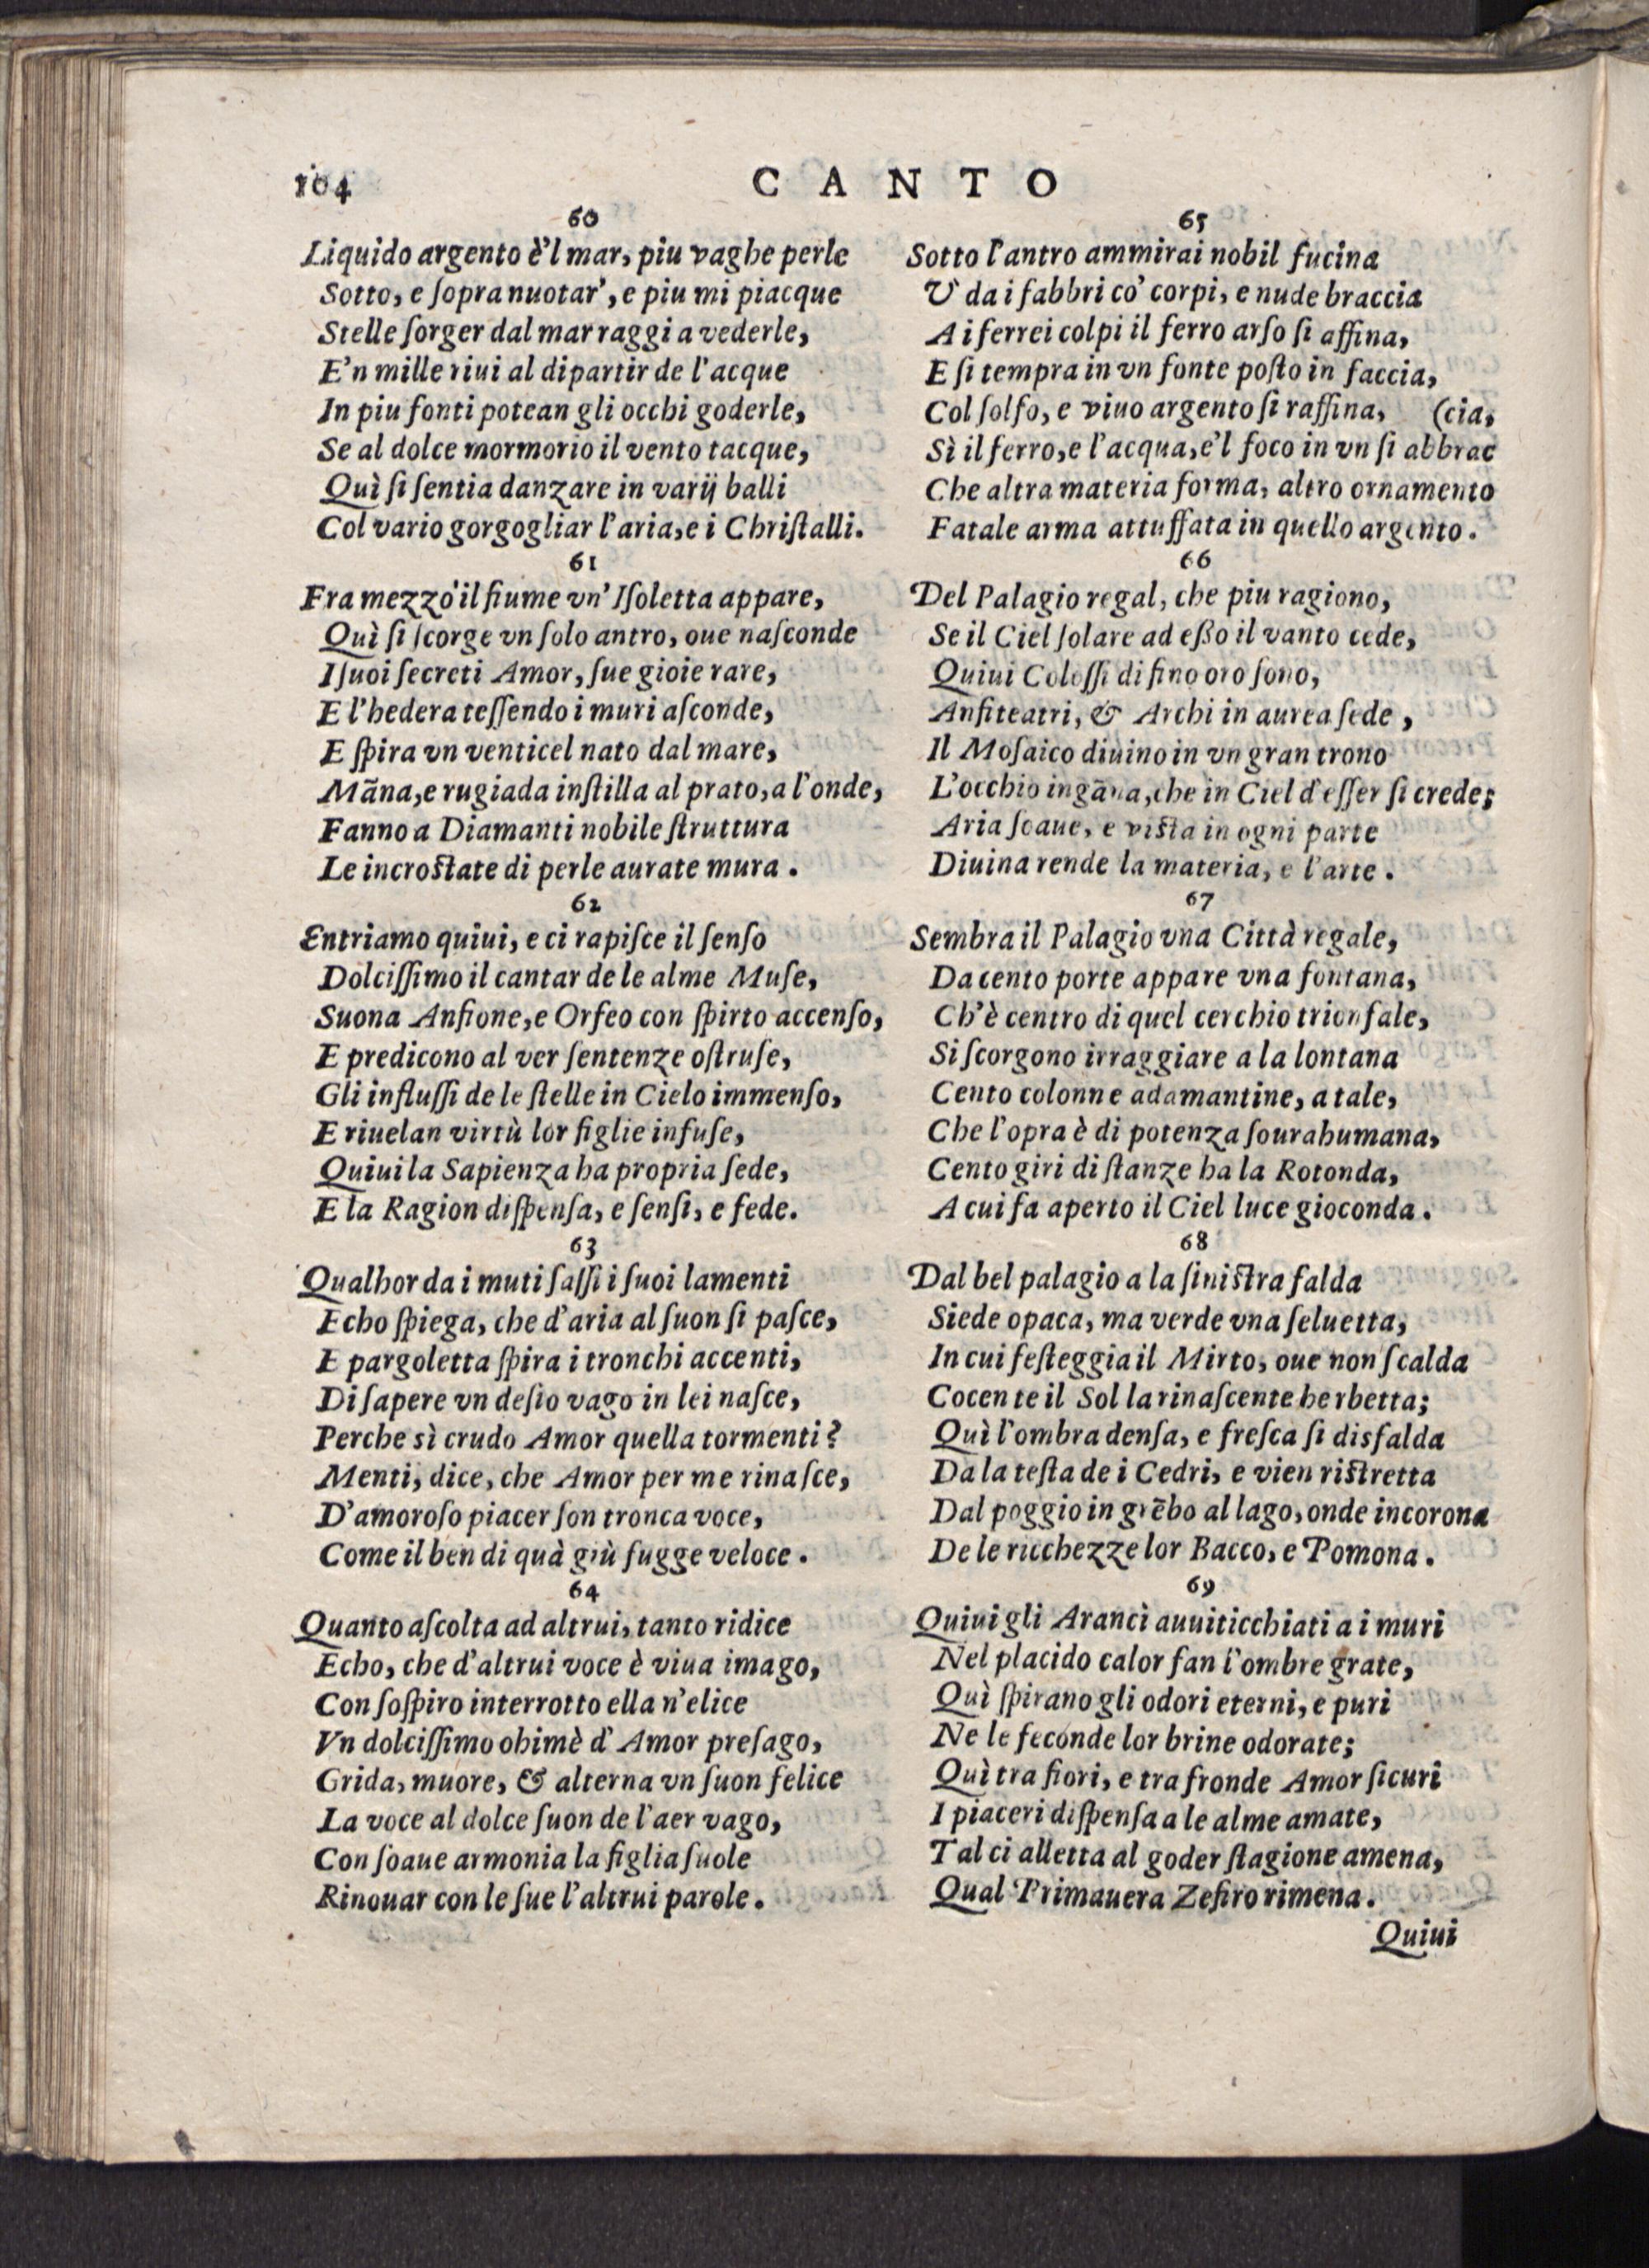 104
CANTO
60
Liquido argento è'l mar, piu vaghe perle
Sotto, e ſopra nuotar', e piu mi piacque
Stelle ſorger dal mar raggi a vederle,
E'n mille riui al dipartir de l'acque
In piu fonti potean gli occhi goderle,
Se al dolce mormorio il vento tacque,
Quì ſi ſentia danzare in varij balli
Col vario gorgogliar l'aria, e i Chriſtalli.
61
Fra mezzo'il fiume vn' Iſoletta appare,
Quì ſi ſcorge vn ſolo antro, oue naſconde
I ſuoi ſecreti Amor, ſue gioie rare,
E l'hedera teſſendo i muri aſconde,
E ſpira vn venticel nato dal mare,
Mãna, e rugiada inſtilla al prato, a l'onde,
Fanno a Diamanti nobile ſtruttura
Le incroſtate di perle aurate mura.
62
Entriamo quiui, e ci rapiſce il ſenſo
Dolciſſimo il cantar de le alme Muſe,
Suona Anfione, e Orfeo con ſpirto accenſo,
E predicono al ver ſentenze oſtruſe,
Gli influſſi de le ſtelle in Cielo immenſo,
E riuelan virtù lor figlie infuſe,
Quiui la Sapienza ha propria ſede,
E la Ragion diſpenſa, e ſenſi, e fede.
63
Qualhor da i muti ſaſſi i ſuoi lamenti
Echo ſpiega, che d'aria al ſuon ſi paſce,
E pargoletta ſpira i tronchi accenti,
Di ſapere vn deſio vago in lei naſce,
Perche sì crudo Amor quella tormenti?
Menti, dice, che Amor per me rinaſce,
D'amoroſo piacer ſon tronca voce,
Come il ben di quà giù fugge veloce.
64
Quanto aſcolta ad altrui, tanto ridice
Echo, che d'altrui voce è viua imago,
Con ſoſpiro interrotto ella n'elice
Vn dolciſſimo ohimè d' Amor preſago,
Grida, muore, & alterna vn ſuon felice
La voce al dolce ſuon de l'aer vago,
Con ſoaue armonia la figlia ſuole
Rinouar con le ſue l'altrui parole.
65
Sotto l'antro ammirai nobil fucina
V' da i fabbri co' corpi, e nude braccia
A i ferrei colpi il ferro arſo ſi affina,
E ſi tempra in vn fonte poſto in faccia,
Col ſolfo, e viuo argento ſi raffina, (cia,
Sì il ferro, e l'acqua, e'l foco in vn ſi abbrac
Che altra materia forma, altro ornamento
Fatale arma attuffata in quello argento.
66
Del Palagio regal, che piu ragiono,
Se il Ciel ſolare ad eßo il vanto cede,
Quiui Coloſſi di fino oro ſono,
Anfiteatri, & Archi in aurea ſede,
Il Moſaico diuino in vn gran trono
L'occhio ingãna, che in Ciel d'eſſer ſi crede;
Aria ſoaue, e viſta in ogni parte
Diuina rende la materia, e l'arte.
67
Sembra il Palagio vna Città regale,
Da cento porte appare vna fontana,
Ch'è centro di quel cerchio trionfale,
Si ſcorgono irraggiare a la lontana
Cento colonne adamantine, a tale,
Che l'opra è di potenza ſourahumana,
Cento giri di ſtanze ha la Rotonda,
A cui fa aperto il Ciel luce gioconda.
68
Dal bel palagio a la ſiniſtra falda
Siede opaca, ma verde vna ſeluetta,
In cui feſteggia il Mirto, oue non ſcalda
Cocente il Sol la rinaſcente herbetta;
Quì l'ombra denſa, e freſca ſi disfalda
Da la teſta de i Cedri, e vien riſtretta
Dal poggio in grẽbo al lago, onde incorona
De le ricchezze lor Bacco, e Pomona.
69
Quiui gli Aranci auuiticchiati a i muri
Nel placido calor fan l'ombre grate,
Quì ſpirano gli odori eterni, e puri
Ne le feconde lor brine odorate;
Quì tra fiori, e tra fronde Amor ſicuri
I piaceri diſpenſa a le alme amate,
Tal ci alletta al goder ſtagione amena,
Qual Primauera Zefiro rimena.
Quiui